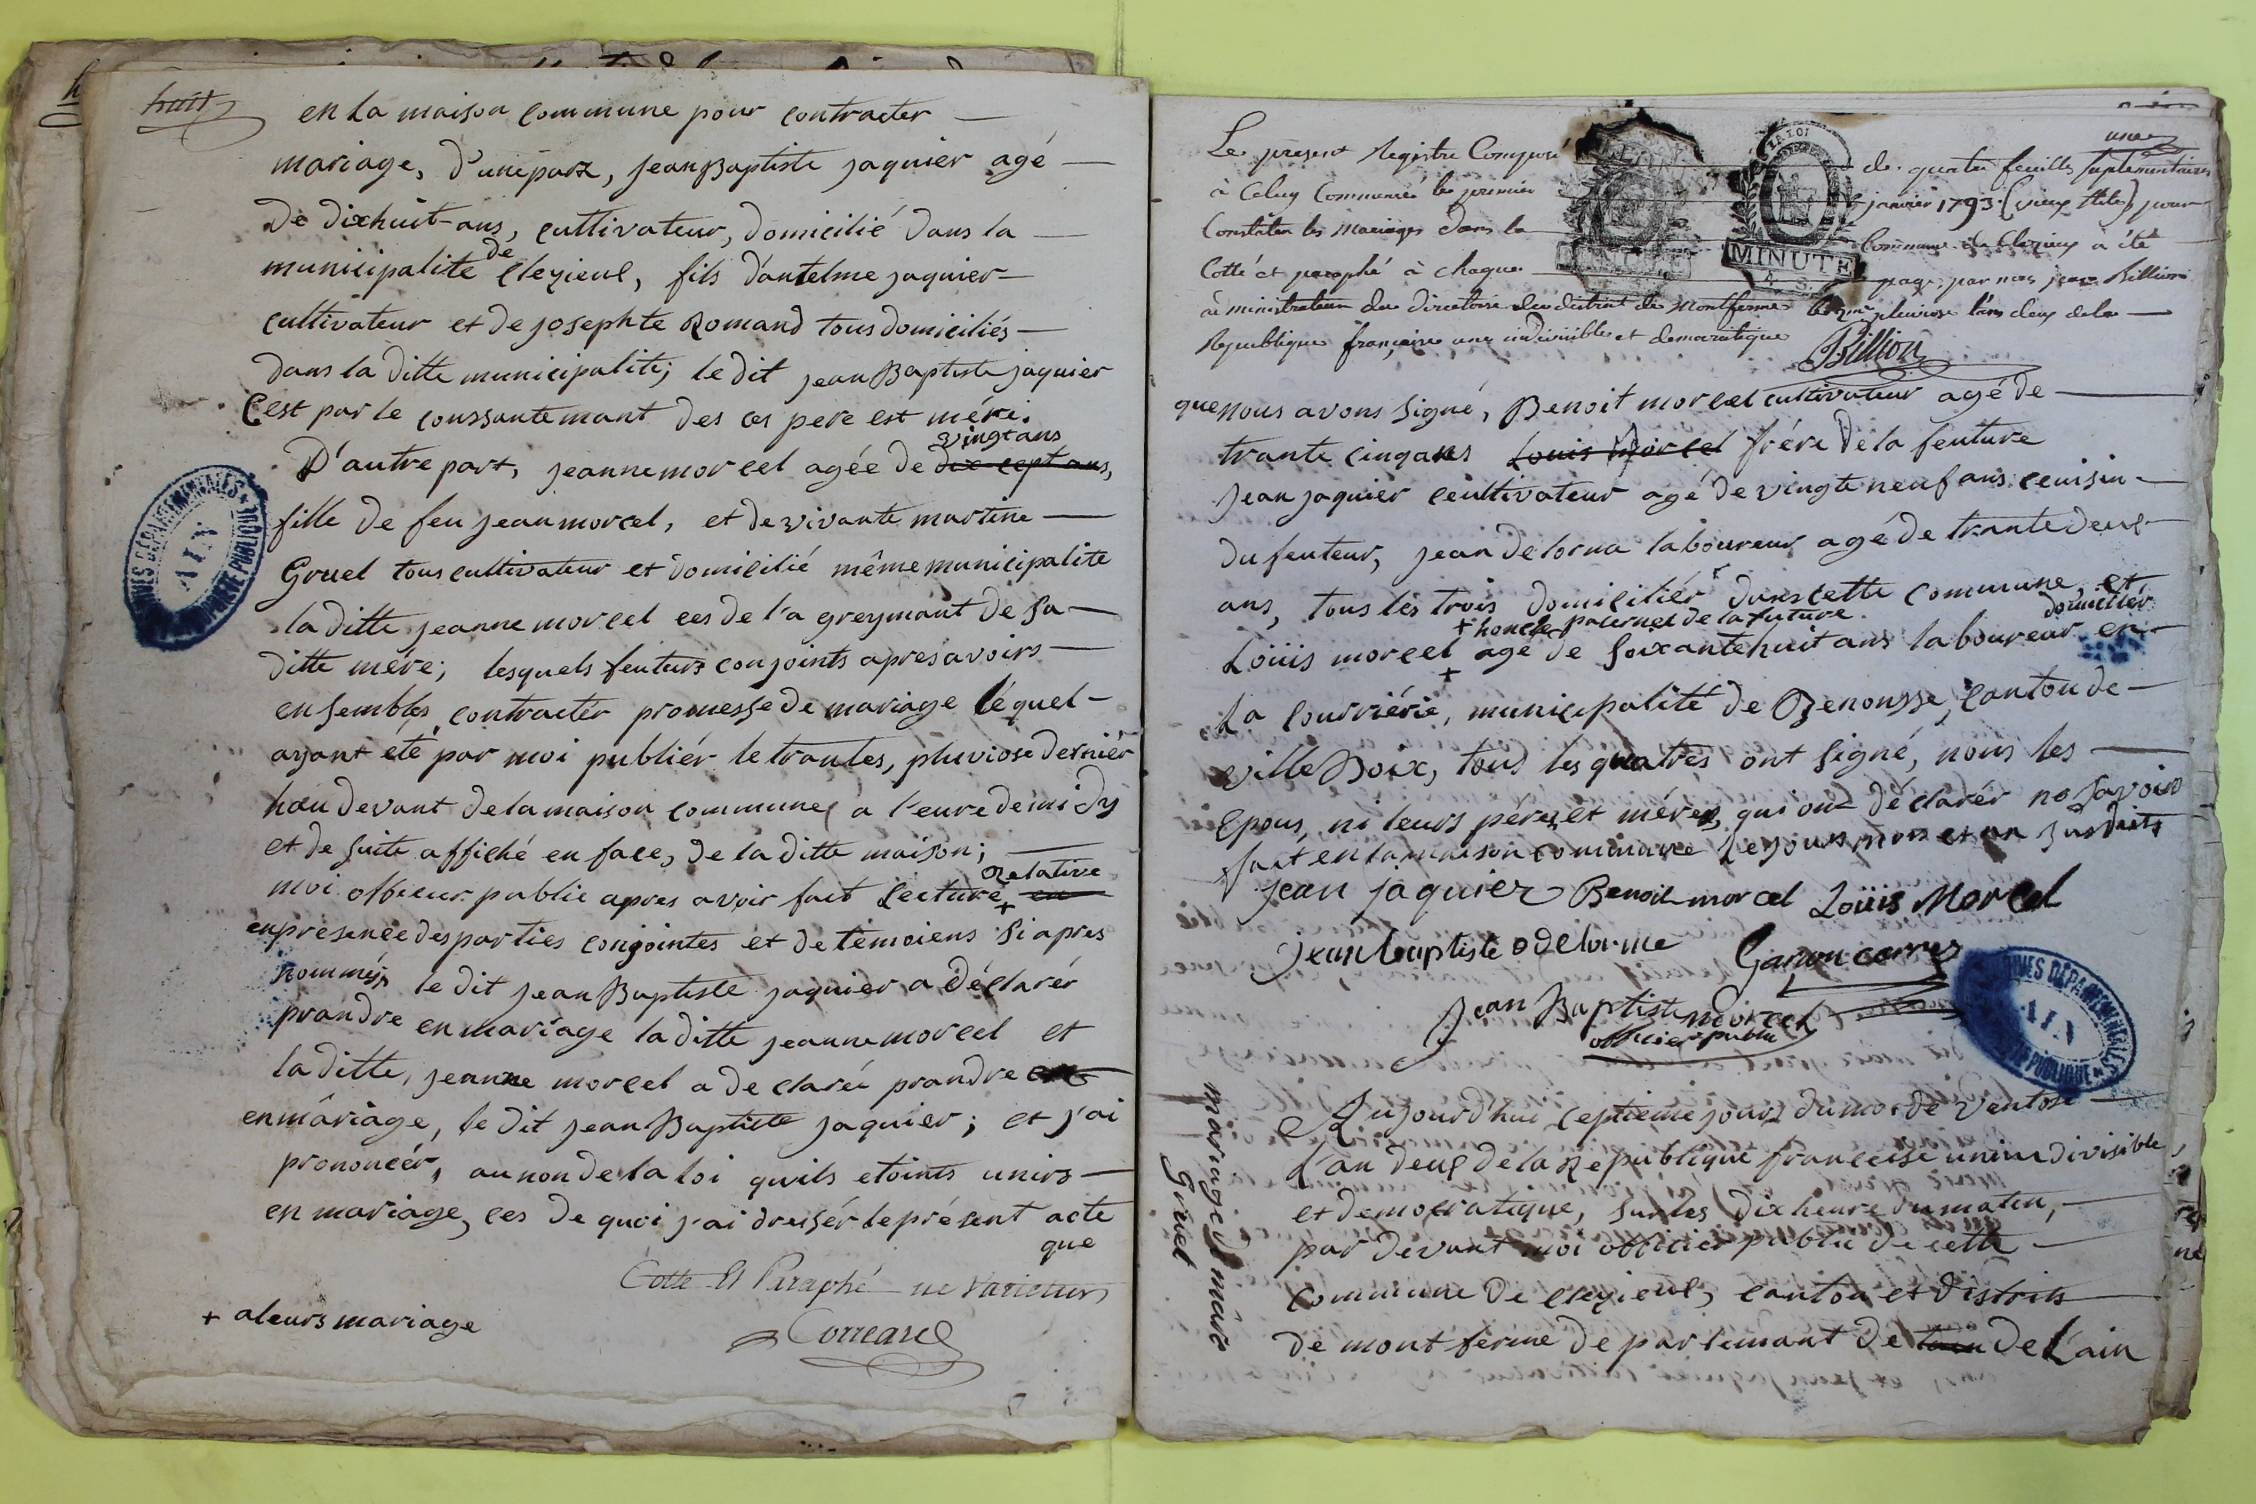 huit
en La maison commune pour contracter
mariage, d'unepart, jeanBaptiste jaquier agé
De dixhuit ans, cultivateur, domicilié dans la
municipalite de Cleyzieul, fils d'antelme jaquier
cultivateur et de josephte Romand tous domiciliés
dans la ditte municipalité; le dit jean Baptiste jaquier
C'est par le coussantemant des ces pere est mére.
D'autre part, jeanne morcel agée de vingt ans dix cept ans,
fille de feu jean morcel, et de vivante martine
Gruel tous cultivateur et domicilié même municipalite
la ditte jeanne morcel ces de l'a greymant de sa
ditte mére; lesquels feuturs conjoints apres avoirs
ensembles contractér promesse de mariage léquel
ayant eté par moi publiér le trantes, pluviose derniér
hau devant de la maison commune a l'eure de midy
et de suite affiché en face, de la ditte maison;
moi officier public apres avoir fait Lecture + Relative en
en présence des parties conjointes et de témoiens si apres
nommés, le dit jean Baptiste jaquier a déclarér
prandre en mariage la ditte jeanne morcel et
la ditte, jeanne morcel a de clarée prandre
en mâriage, le dit jean Baptiste jaquier; et j'ai
prononcér, au non de la loi qu'ils etoints unirs
en mariage, ces de quoi j'ai dressér le présent acte
que
Cotté Et Paraphé ne Varietur
+ aleurs mariage
une
Le présent Registre Composé de quatre feuilles suplementaires
à Celuy Commencé le premier janvier 1793 (vieux stile) pour
Constater les Mariages dans la Commune de Cleyzieu a été
Cotté et paraphé à chaque page par nous jean Billion
administrateur du directoire du district de Montferme le pluviose l'an deux de la
République française une indivisible et democratique
Billion
LA LOI
MINUTE
4. S.
que nous avons signé, Benoit morcel cultivateur agé de
trante cinq ans Louis Morcel frére de la feuture
Jean jaquier ceultivateur agé de vingt neuf ans ceuisin
du feuteur, jean delorna laboureur agé de trante deux
ans, tous les trois domiciliér dans cette commune, et
+ honcle paternel de la future domiciliér
Loüis morcel + agé de soixante huit ans laboureur en
La Courriérie, municipalité de Benonsse, canton de
ville Boix, tous les quatres ont signé, nons les
Epous, ni leurs péres et méres, qui ont déclarér ne savoir
fait en la maison commune le jours mois et an susdits
jean jaquier Benoit morcel Loüis Morcel
jean baptiste delorme
jean Baptiste morcel
officier public
mariage d marc
Gruel
Aujourdhui ceptieme jours du mois de ventose
L'an deux de la Republique francaise unindivisible,
et democratique, sur les dix heure du matin,
par devant moi officier public de cette
commune de cleyzieul, canton et distrits
de montferme departemant de l'ain de L'ain
ARCHIVES DÉPARTEMENTALES
AIN
PROPRIÉTÉ PUBLIQUE
ARCHIVES DÉPARTEMENTALES
AIN
PROPRIÉTÉ PUBLIQUE